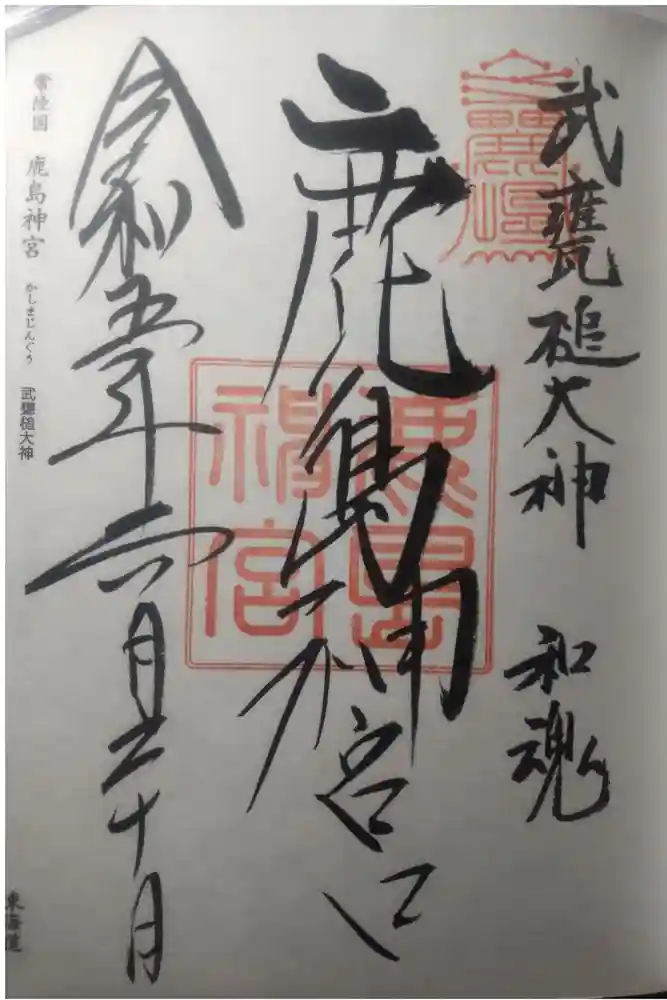 武甕槌大神 和魂
鹿島神宮
鹿島
神宮
令和五年六月二十日
常陸国 鹿島神宮 かしまじんぐう 武甕槌大神
東海道